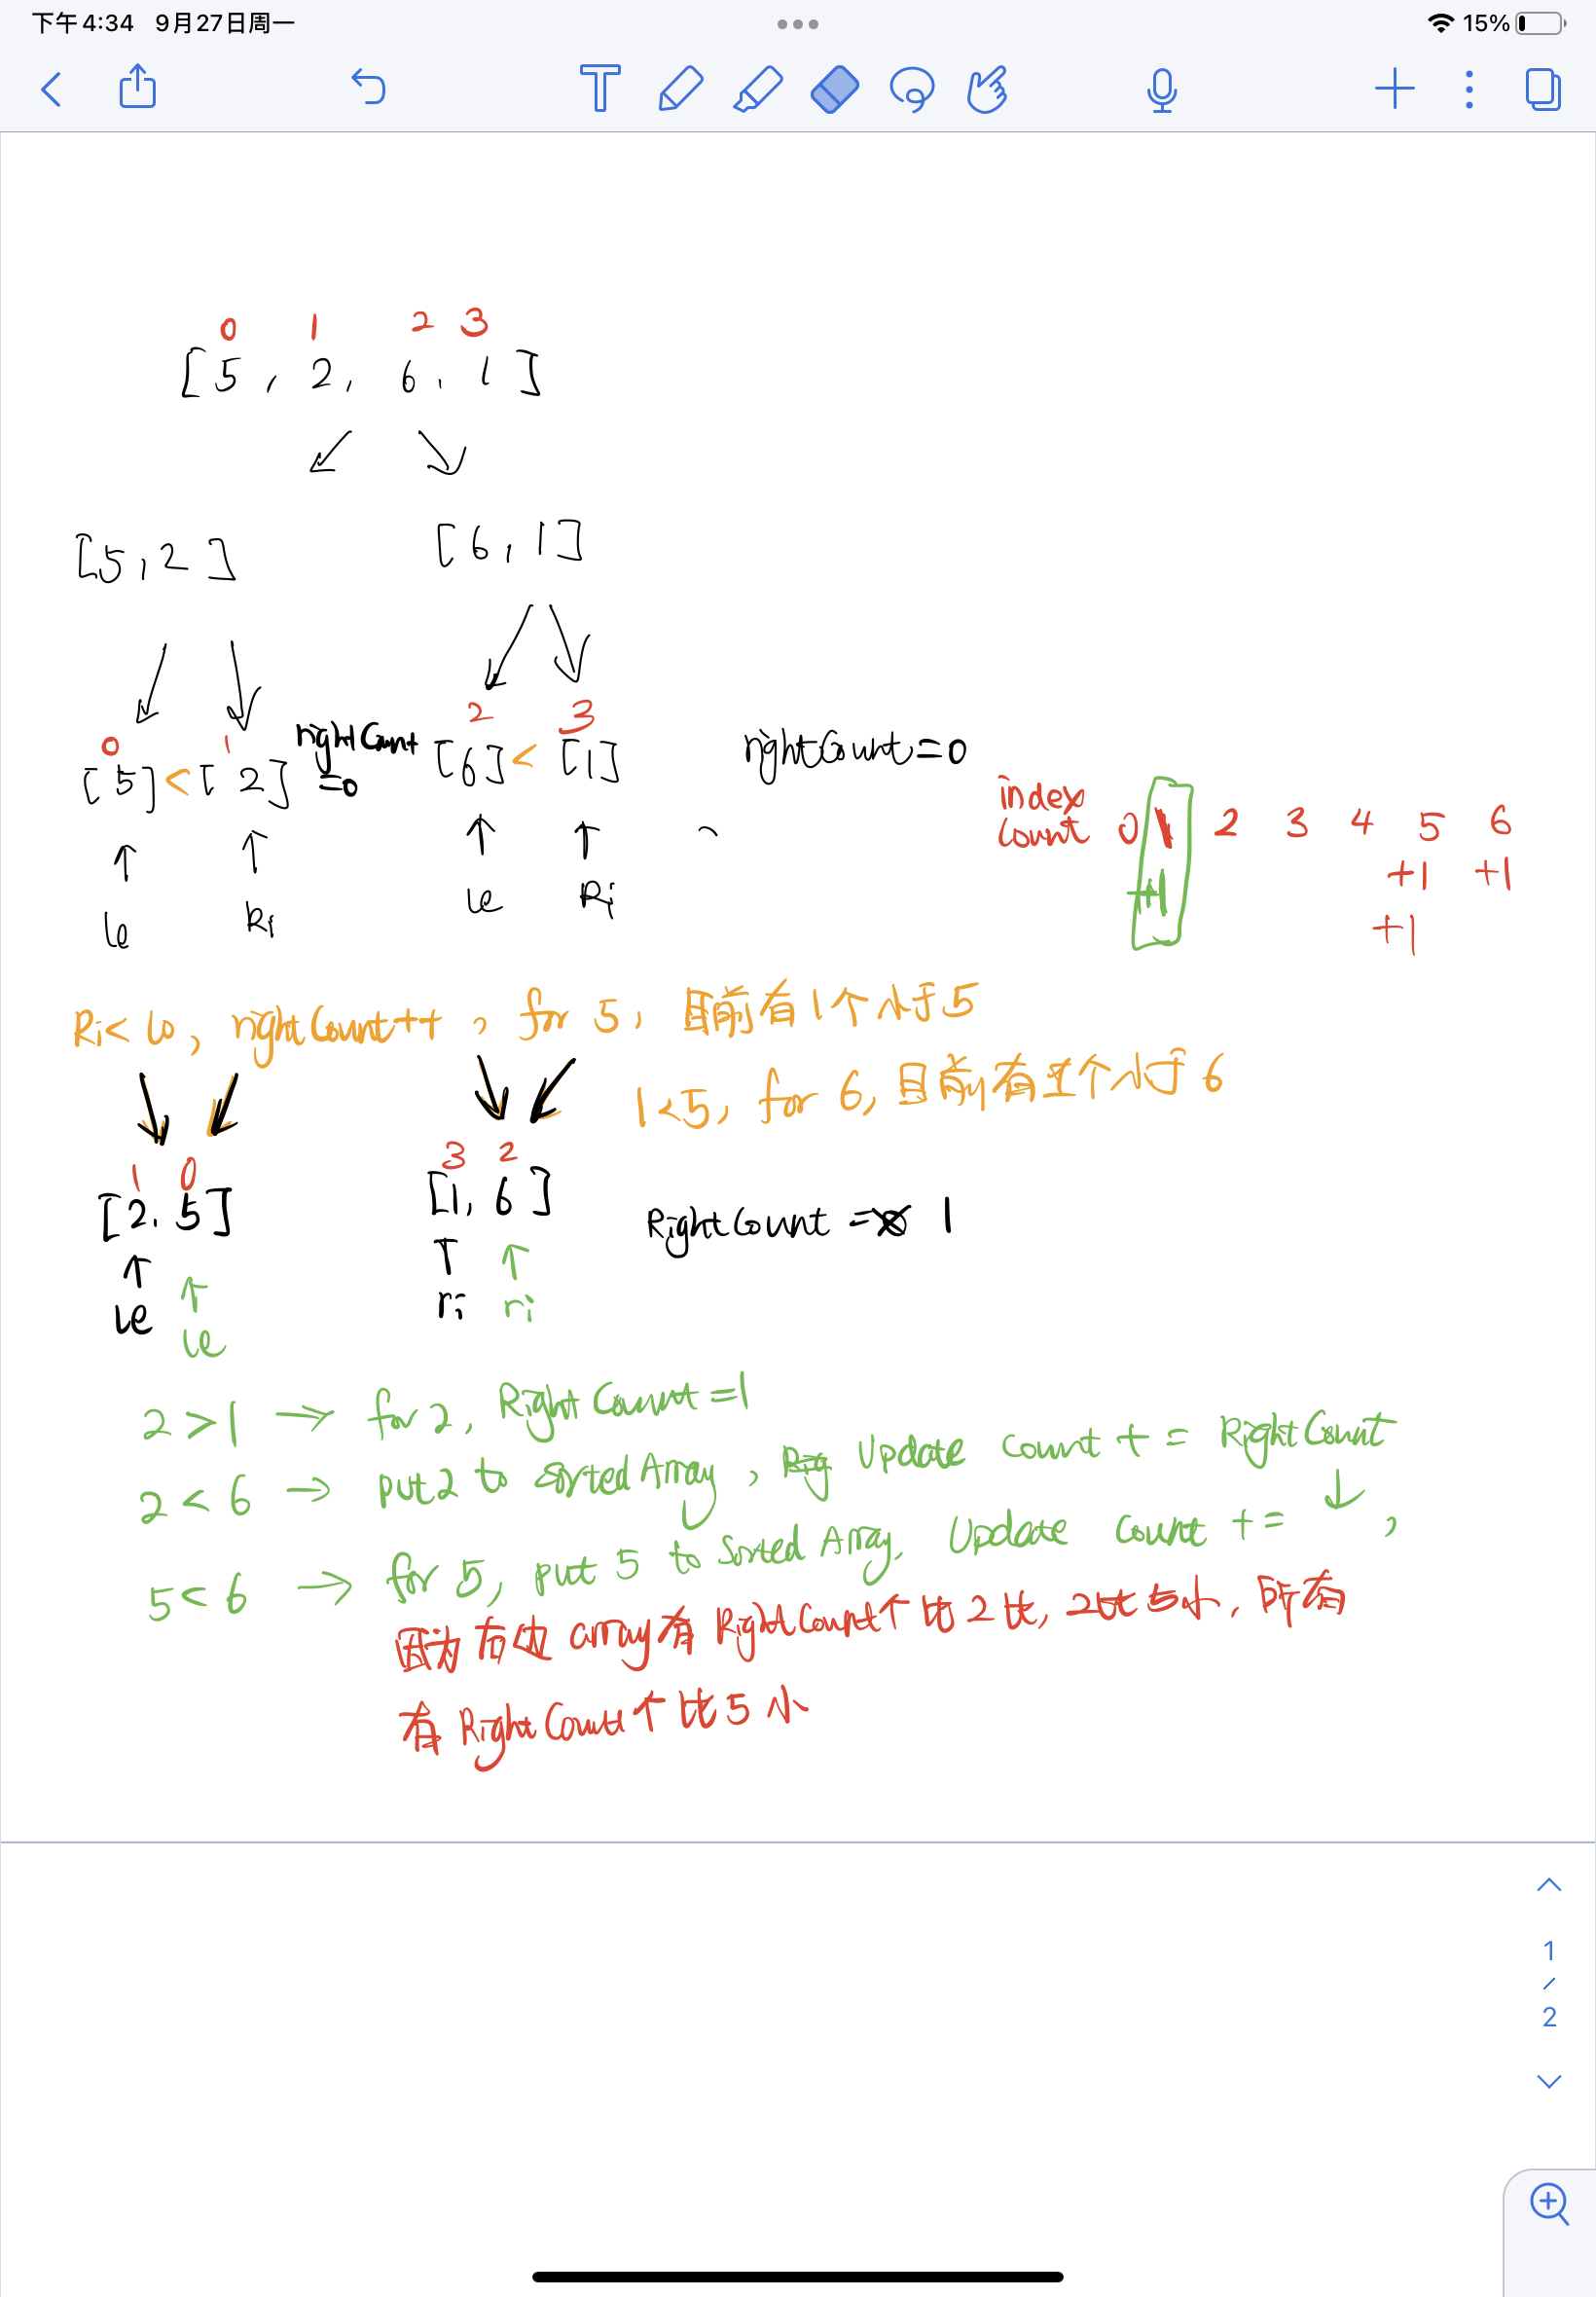 下午4:34 9月27日周一
15%
0 1 2 3
[5, 2, 6, 1]
[5,2] [6,1]
0 1 2 3
[5]<[2] rightCount =0 [6]<[1] rightCount=0
le Ri le Ri
index 0 1 2 3 4 5 6
count +1 +1 +1
+1
Ri<le, rightCount++, for 5, 目前有1个小于5
1<5, for 6, 目前有1个小于6
1 0 3 2
[2,5] [1,6] RightCount = 1
le le ri ri
2>1 → for 2, RightCount=1
2<6 → put 2 to sorted Array, Update count += RightCount
5<6 → for 5, put 5 to Sorted Array, Update count += ↓,
因为右边array有RightCount个比2小, 2比5小, 所有
有RightCount个比5小
1
/
2